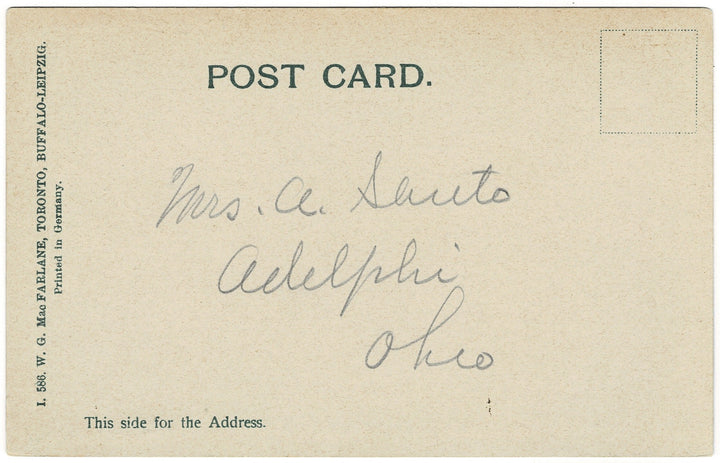 POST CARD.
I. 586. W. G. Mac FARLANE, TORONTO, BUFFALO-LEIPZIG.
Printed in Germany.
Mrs. A. Santo
Adelphi
Ohio
This side for the Address.